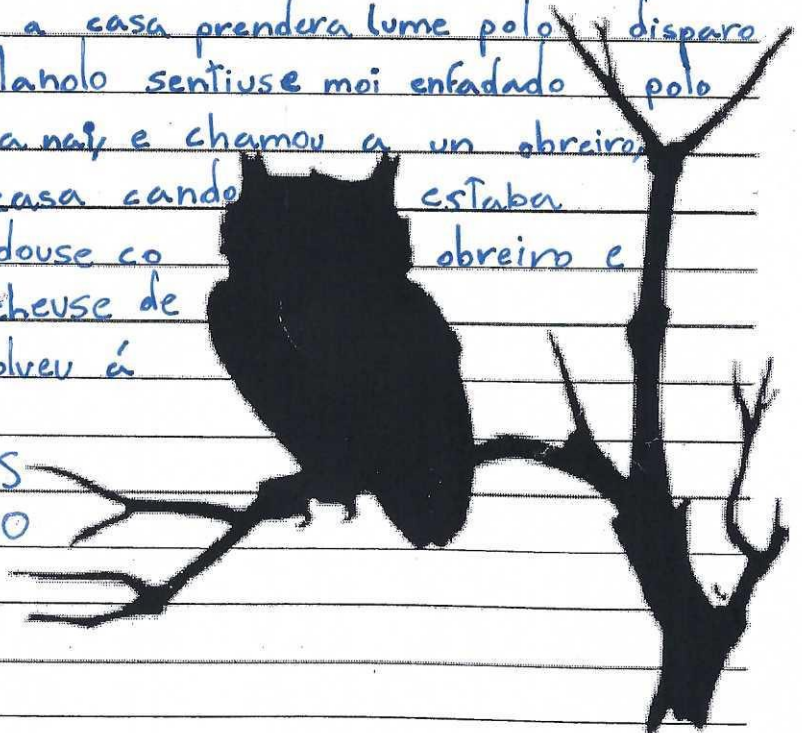 a casa prendera lume polo disparo
lanolo sentiuse moi enfadado polo
a nai, e chamou a un obreiro,
casa cando estaba
douse co obreiro e
cheuse de
olveu á
S
O